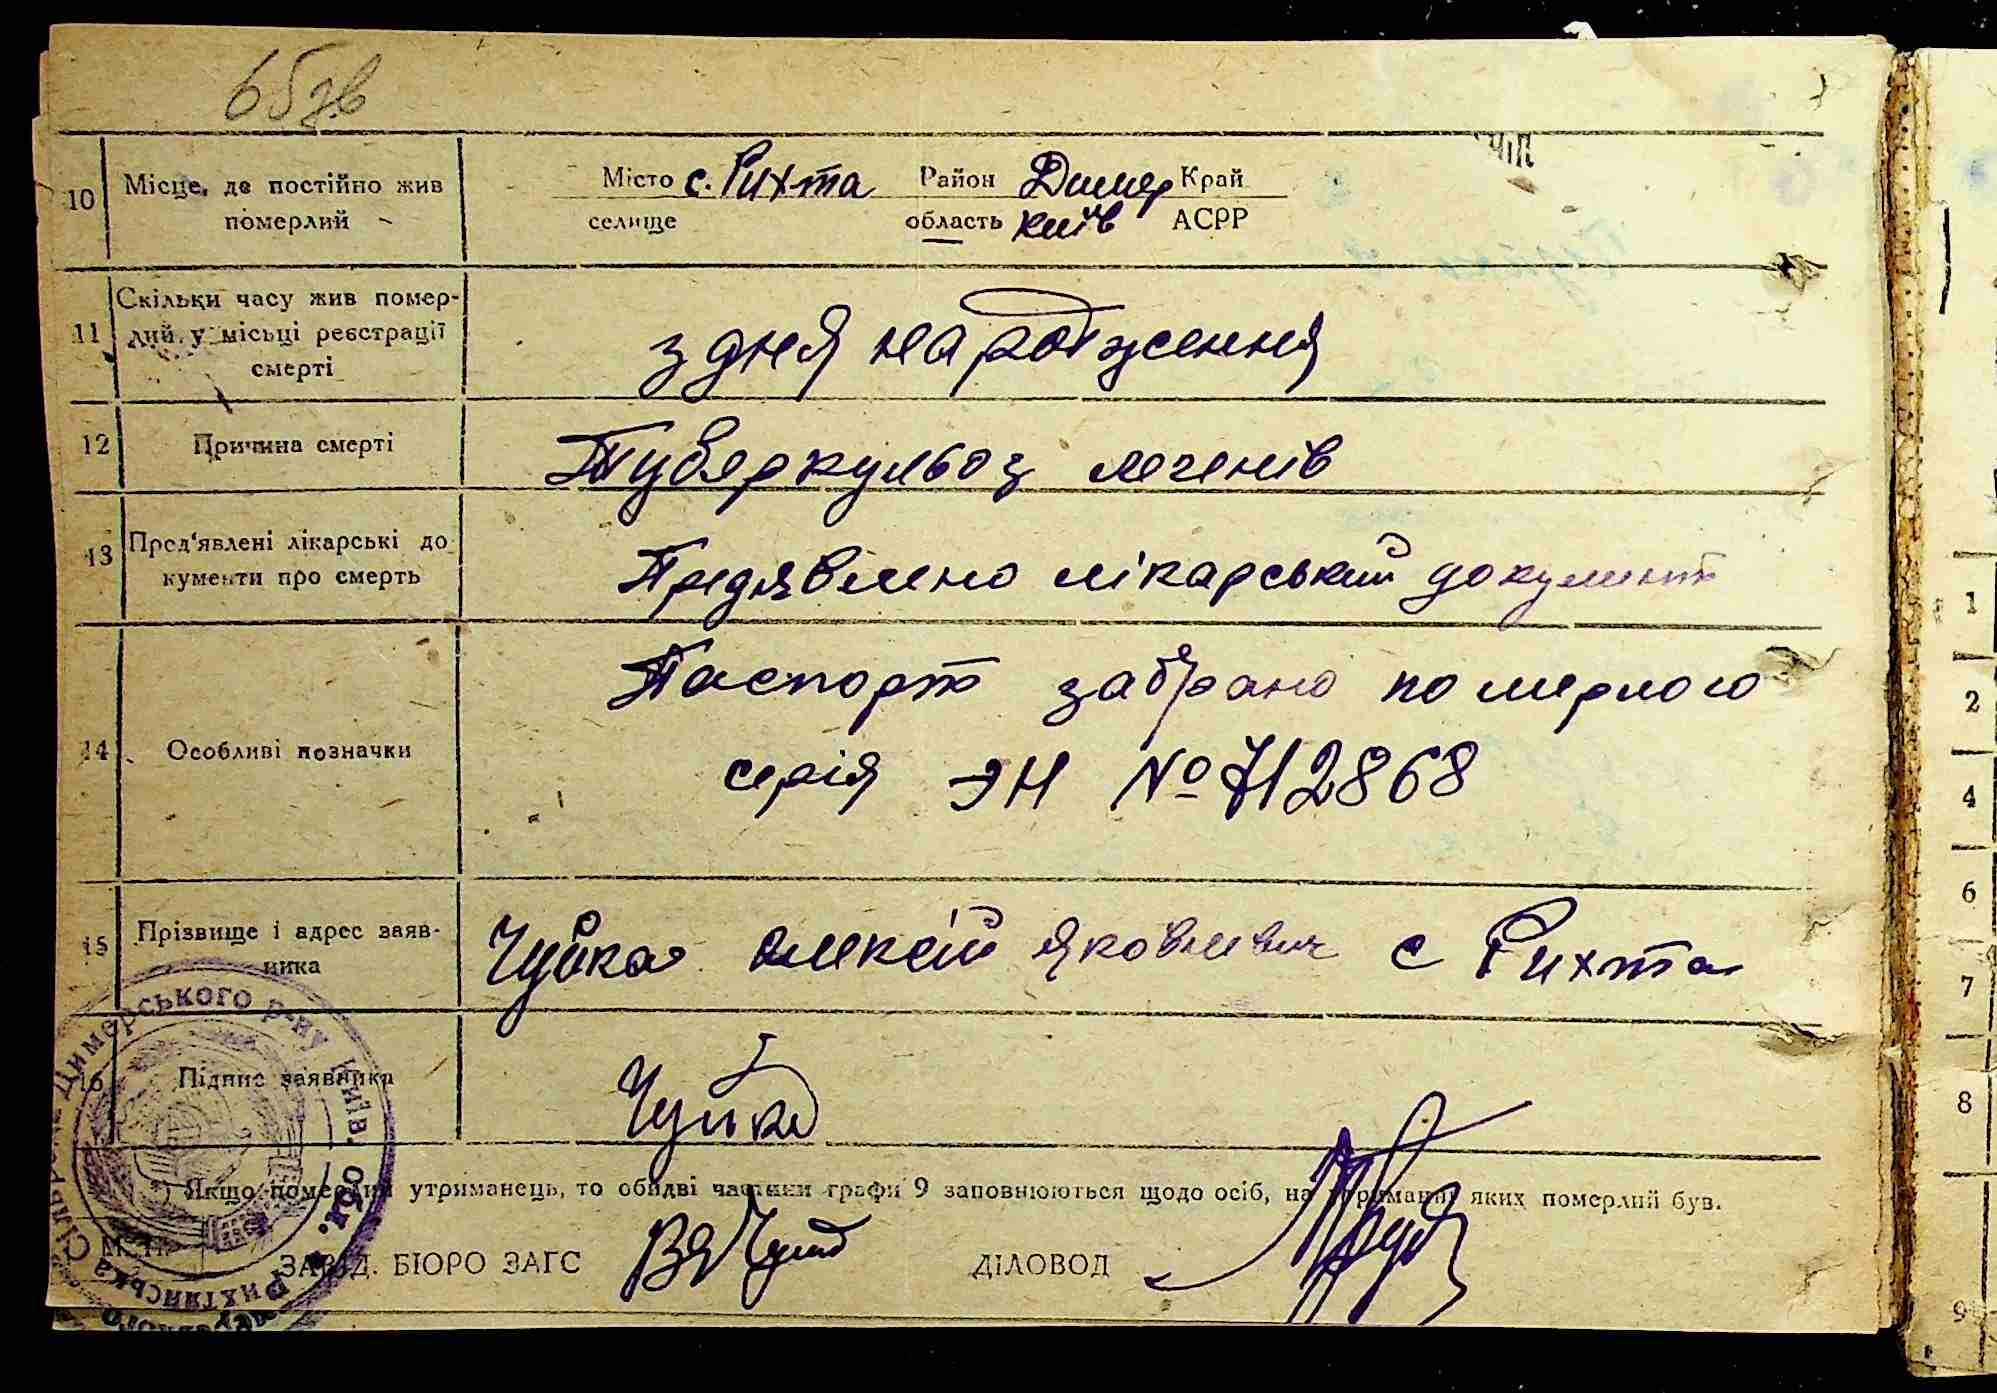 65зв
10 Місце, де постійно жив Місто с. Рихта Район Димер Край
померлий селище область Київ АСРР
Скільки часу жив помер-
11 лий у місьці реєстрації з дня народження
смерті
12 Причина смерті Тубяркульоз легенів
13 Пред'явлені лікарські до
кументи про смерть Предявлено лікарський документ
Паспорт забрано померлого
14 Особливі позначки серія ЭН № 712868
15 Прізвище і адрес заяв-
ника Чуйка Олексій Яковлевич с Рихта
16 Підпис заявника Чуйко
Якщо померлий утриманець, то обидві частини графи 9 заповнюються щодо осіб, на утриманні яких померлий був.
М. П. ЗАВІД. БЮРО ЗАГС ДІЛОВОД
Димерського р-ну Київ. обл. Рихтянська Сільрада
1
2
4
6
7
8
9